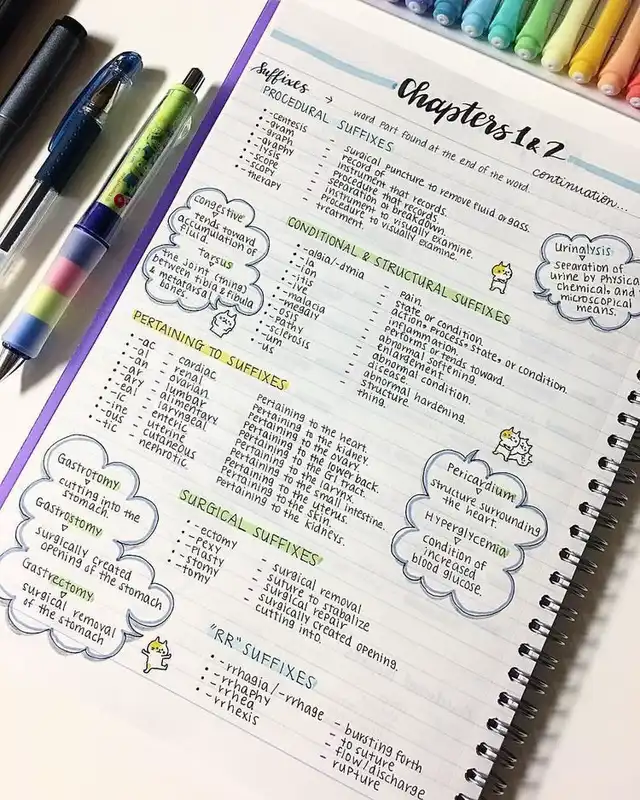 Chapters 1 & 2
continuation...
Suffixes → word part found at the end of the word.
PROCEDURAL SUFFIXES
• -centesis - surgical puncture to remove fluid or gas.
• -gram - record of.
• -graph - instrument that records.
• -graphy - procedure that records.
• -lysis - separation or breakdown.
• -scope - instrument to visually examine.
• -scopy - procedure to visually examine.
• -therapy - treatment.
Congestive
tends toward
accumulation of
fluid.
Tarsus
the joint (thing)
between tibia & fibula
& metatarsal
bones.
CONDITIONAL & STRUCTURAL SUFFIXES
• -algia/-dynia - Pain.
• -ia - state or condition.
• -ion - action, process, state, or condition.
• -itis - inflammation.
• -ive - performs or tends toward.
• -malacia - abnormal softening.
• -megaly - enlargement.
• -osis - abnormal condition.
• -pathy - disease.
• -sclerosis - abnormal hardening.
• -um - structure.
• -us - thing.
Urinalysis
separation of
urine by physical,
chemical, and
microscopical
means.
PERTAINING TO SUFFIXES
• -ac - cardiac Pertaining to the heart.
• -al - renal Pertaining to the kidney.
• -an - ovarian Pertaining to the ovary.
• -ar - lumbar Pertaining to the lower back.
• -ary - alimentary Pertaining to the GI tract.
• -eal - laryngeal Pertaining to the larynx.
• -ic - enteric Pertaining to the small intestine.
• -ine - uterine Pertaining to the uterus.
• -ous - cutaneous Pertaining to the skin.
• -tic - nephrotic Pertaining to the kidneys.
Pericardium
structure surrounding
the heart.
Hyperglycemia
condition of
increased
blood glucose.
Gastrotomy
cutting into the
stomach.
Gastrostomy
surgically created
opening of the stomach
Gastrectomy
surgical removal
of the stomach
SURGICAL SUFFIXES
• -ectomy - surgical removal
• -pexy - suture to stabalize
• -plasty - surgical repair
• -stomy - surgically created opening.
• -tomy - cutting into.
"RR" SUFFIXES
• -rrhagia/-rrhage - bursting forth
• -rrhaphy - to suture
• -rrhea - flow/discharge
• -rrhexis - rupture